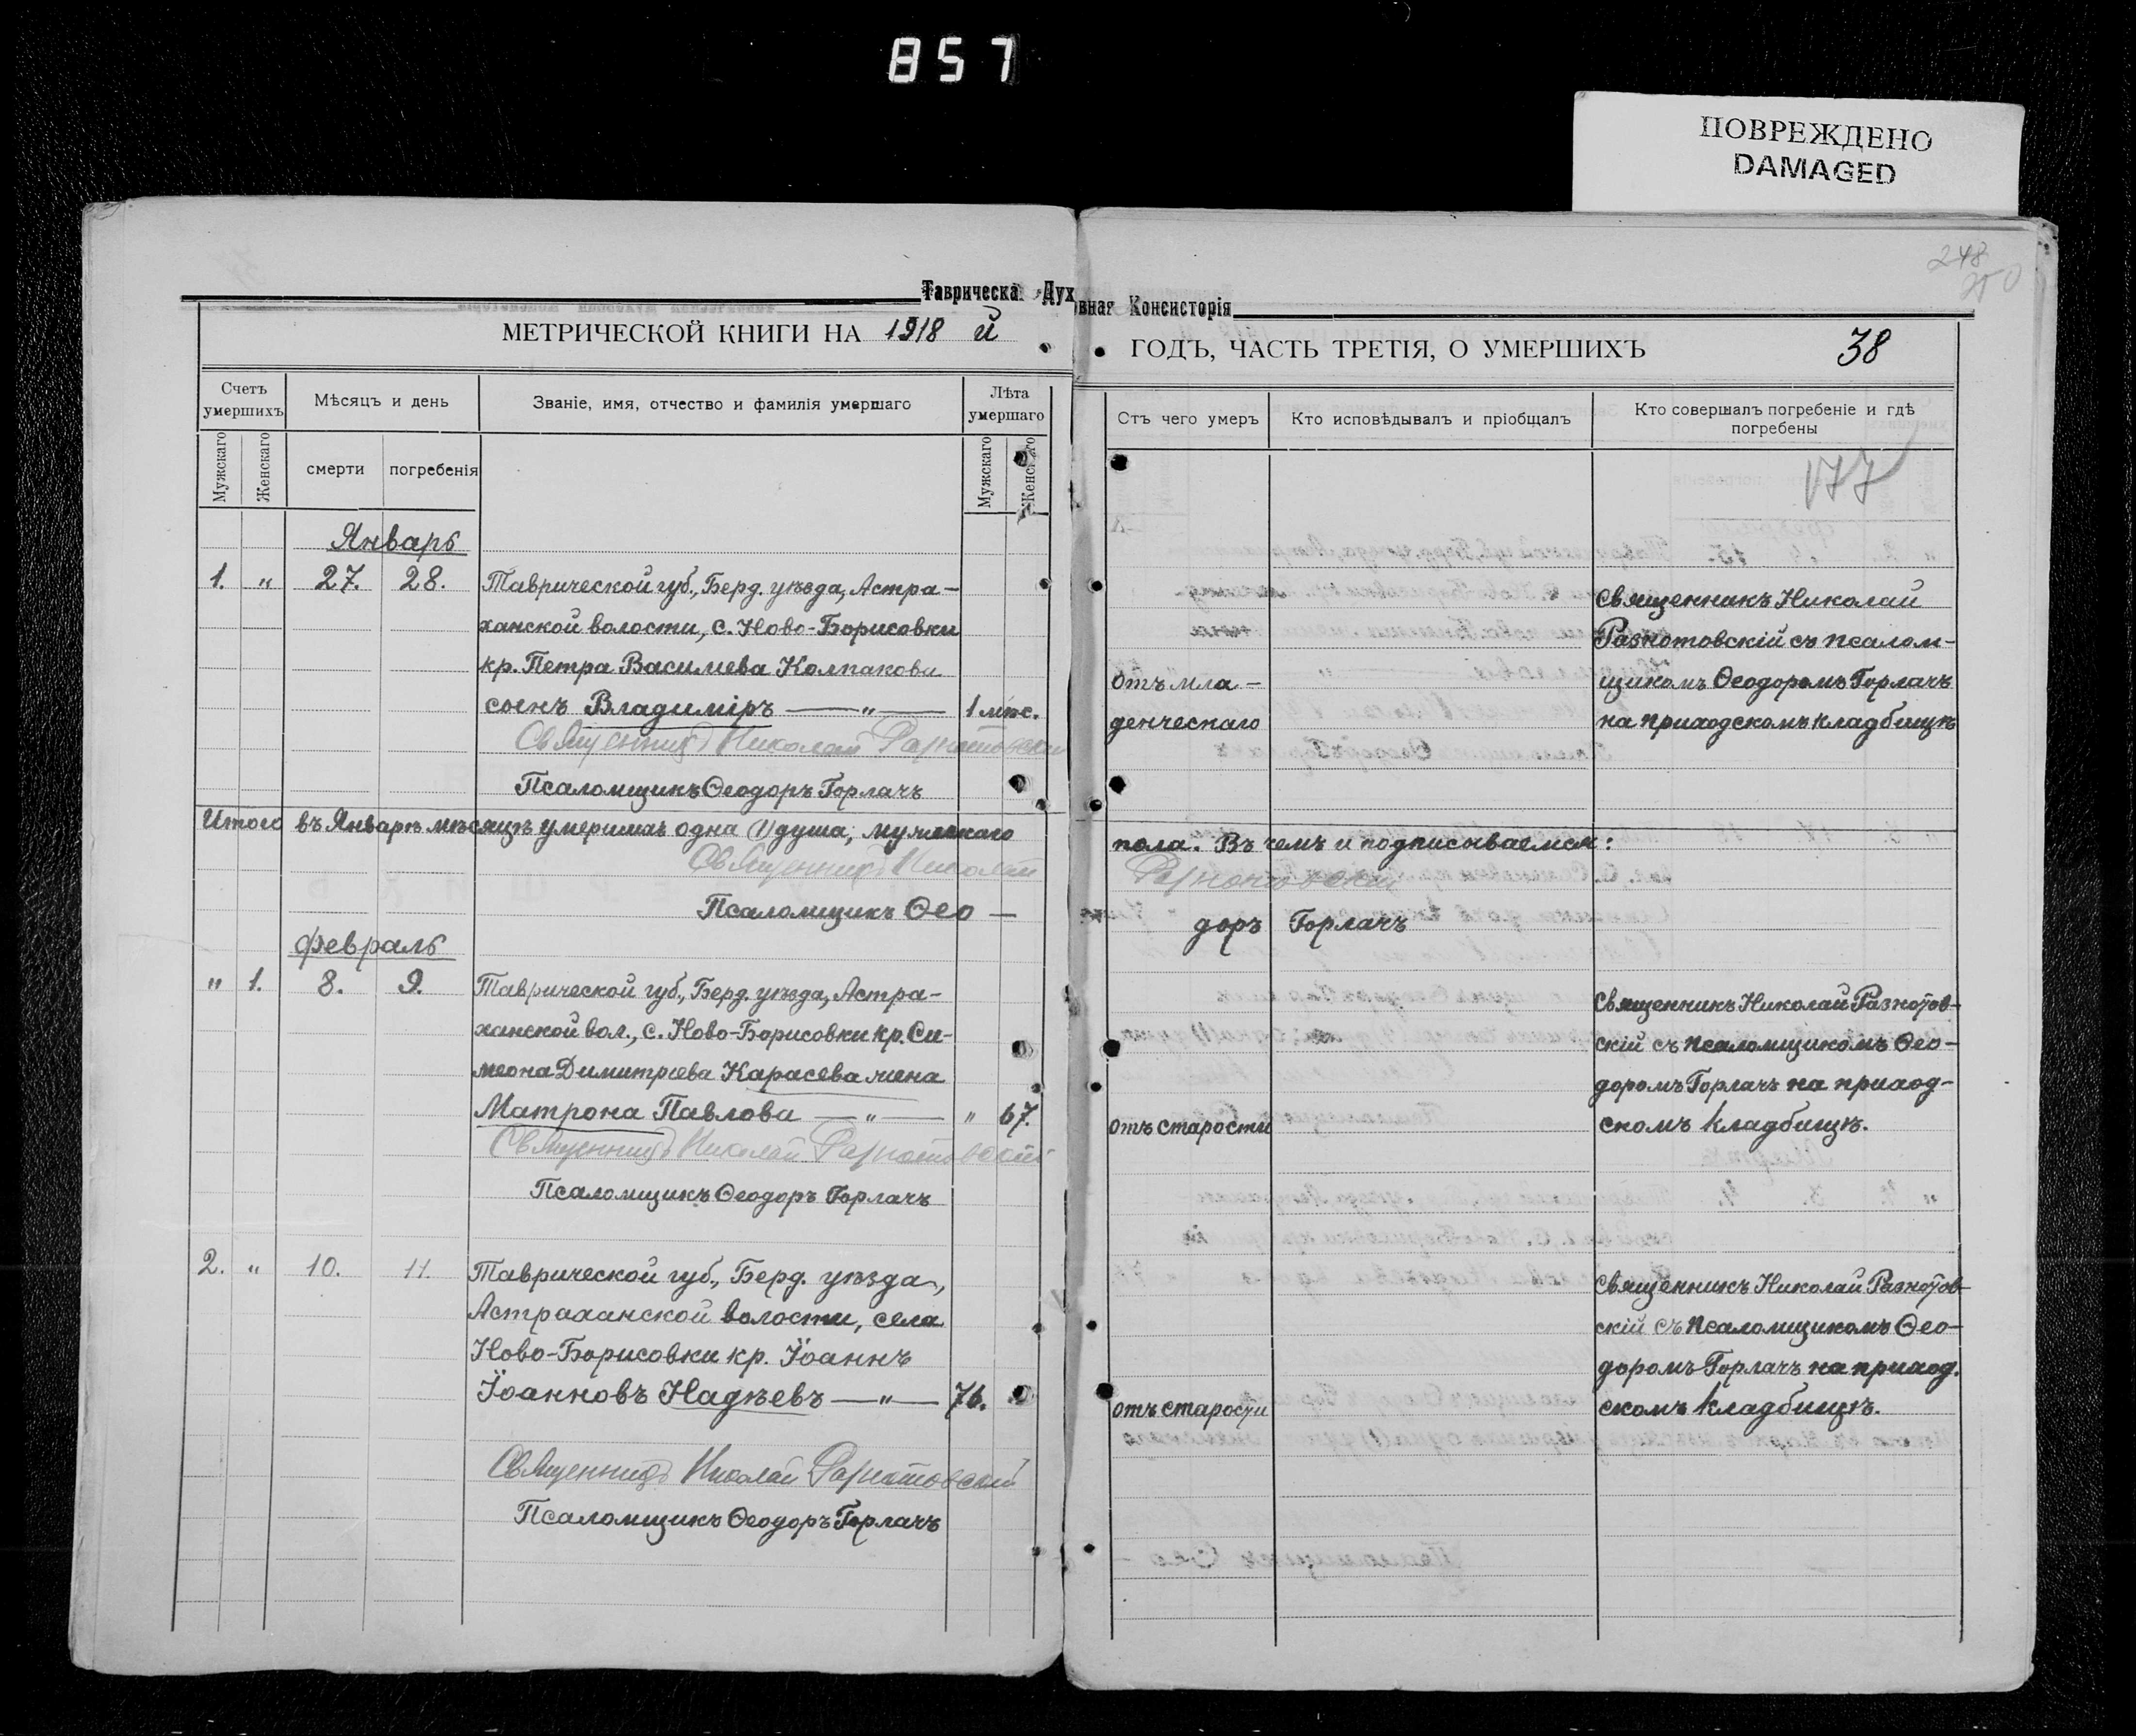 857
ПОВРЕЖДЕНО
DAMAGED
248
250
Таврическая Духовная Консисторія
МЕТРИЧЕСКОЙ КНИГИ НА 1918 й
ГОДЪ, ЧАСТЬ ТРЕТІЯ, О УМЕРШИХЪ
38
Счетъ умершихъ
Мѣсяцъ и день
Званіе, имя, отчество и фамилія умершаго
Лѣта умершаго
Стъ чего умеръ
Кто исповѣдывалъ и пріобщалъ
Кто совершалъ погребеніе и гдѣ погребены
Мужскаго
Женскаго
смерти
погребенія
Мужскаго
Женскаго
177
Январь
1. " 27. 28. Таврической губ., Берд. уѣзда, Астра-
ханской волости, с. Ново-Борисовки
кр. Петра Василиева Колпакова
сынъ Владиміръ — " — 1 мѣс.
Священникъ Николай Разнотовскій
Псаломщикъ Ѳеодоръ Горлачъ
отъ мла-
денческаго
Священникъ Николай
Разнотовскій съ псалом-
щикомъ Ѳеодоромъ Горлачъ
на приходскомъ кладбищѣ
Итого въ Январѣ мѣсяцѣ умершихъ одна (1) душа, мужскаго
пола. Въ чемъ и подписываемся:
Священникъ Николай Разнотовскій
Псаломщикъ Ѳео-
доръ Горлачъ
Февраль
" 1. 8. 9. Таврической губ., Берд. уѣзда, Астра-
ханской вол., с. Ново-Борисовки кр. Си-
меона Димитріева Карасева жена
Матрона Павлова — " — " 67.
Священникъ Николай Разнотовскій
Псаломщикъ Ѳеодоръ Горлачъ
отъ старости
Священникъ Николай Разнотов-
скій съ псаломщикомъ Ѳео-
доромъ Горлачъ на приход-
скомъ кладбищѣ.
2. " 10. 11. Таврической губ., Берд. уѣзда,
Астраханской волости, села
Ново-Борисовки кр. Іоаннъ
Іоанновъ Надѣевъ — " — 76.
Священникъ Николай Разнотовскій
Псаломщикъ Ѳеодоръ Горлачъ
отъ старости
Священникъ Николай Разнотов-
скій съ псаломщикомъ Ѳео-
доромъ Горлачъ на приход.
скомъ кладбищѣ.